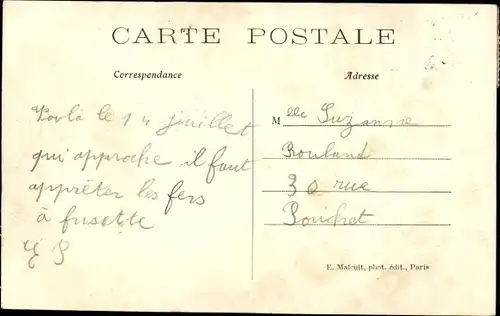 CARTE POSTALE
Correspondance
Adresse
Voilà le 14 juillet
qui approche il faut
apprêter les fers
à frisette
Melle Suzanne
Rouland
30 rue
Pouchet
E. Malcuit, phot. édit., Paris